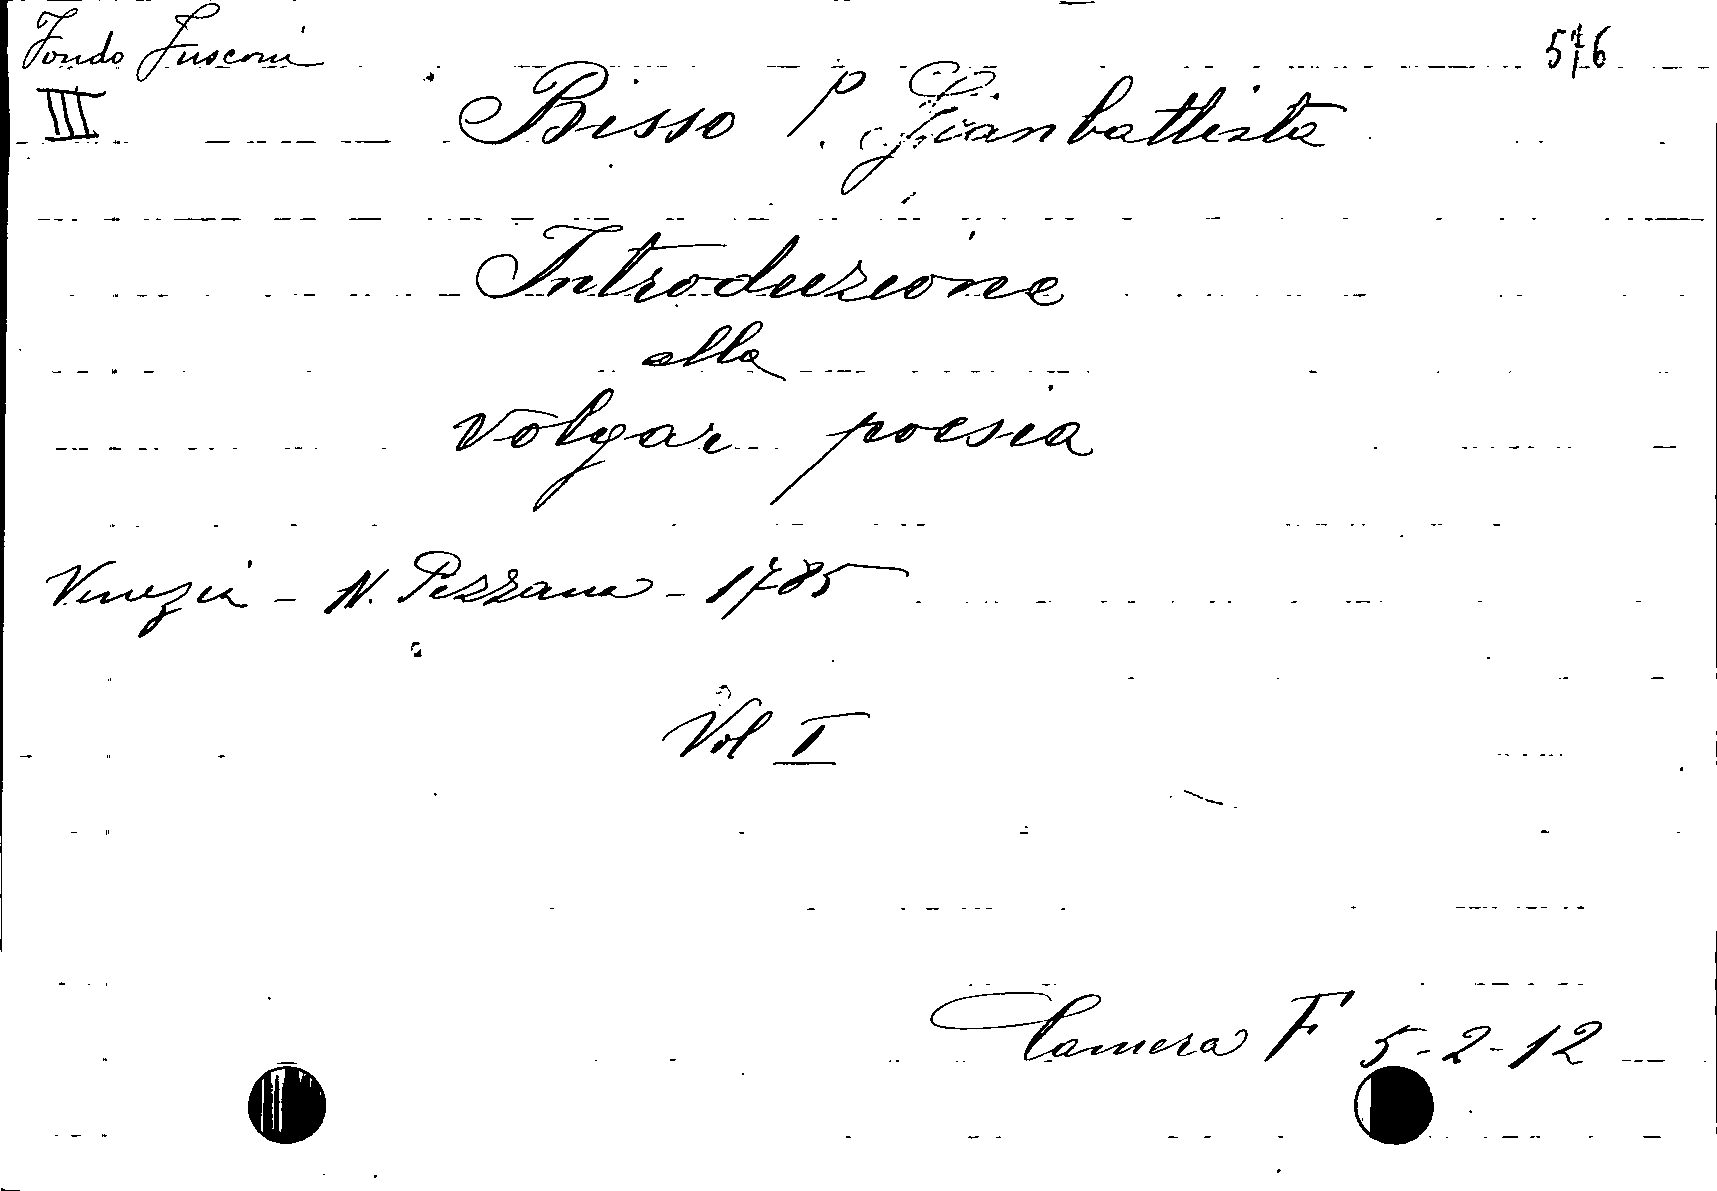 Fondo Fusconi
576
III
Bisso P. Gianbattista
Introduzione
alla
volgar poesia
Venezia - N. Pezzana - 1785
Vol I
Camera F 5-2-12